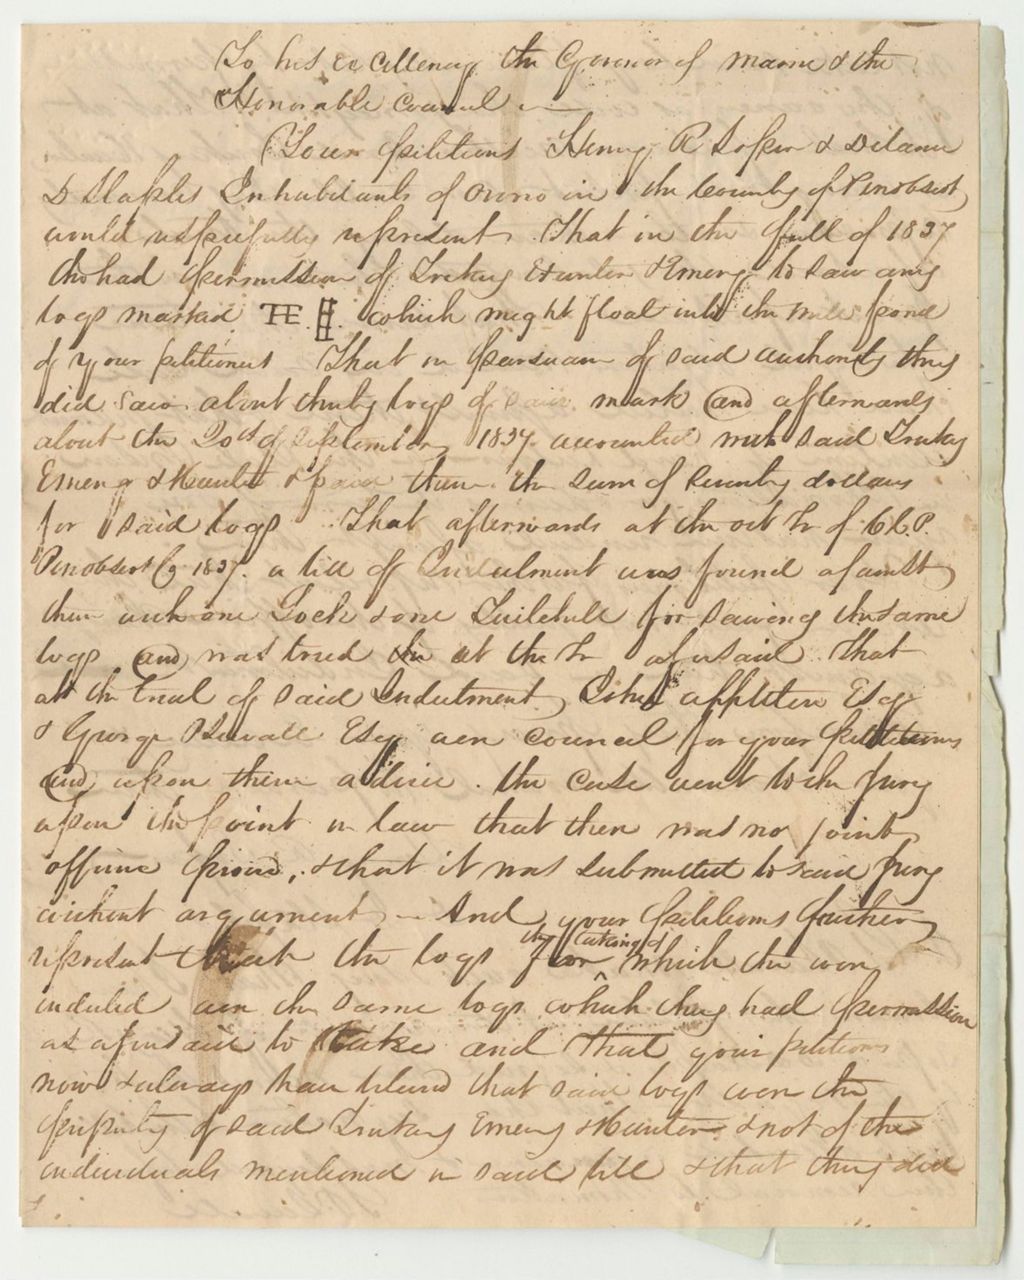 To his excellency the Governor of Maine & the
Honorable Council —
Your petitioners Henry R Soper & Delanu
D Staples Inhabitants of Orono in the County of Penobscot
would respectfully represent. That in the fall of 1837
the had permission of Hunter & Emery to saw any
logs marked TE which might float into the mill pond
of your petitioners That in persuance of said authority they
did saw about thirty logs of said mark and afterwards
about the 20th of September 1837 accounted with said
Emery & Hunter & paid them the sum of seventy dollars
for said logs. That afterwards at the oct Tr of C.C.P.
Penobscot Co 1837. a bill of Indictment was found against
them with one & one for sawing the same
logs and was tried at the Tr aforesaid. That
at the trial of said Indictment, appleton Esq
& George Sewall Esq wer council for your petitioners
and upon there advice. the case went to the jury
upon the point in law that there was no joint
offence proved, & that it was submitted to said jury
without argument — And your petitioners further
represent that the logs for the taking of which the wer
indicted wer the same logs which they had permission
as aforesaid to take and that your petitioners
now & always have beleived that said logs were the
property of said Emery & Hunter & not of the
individuals mentioned in said bill & that they did